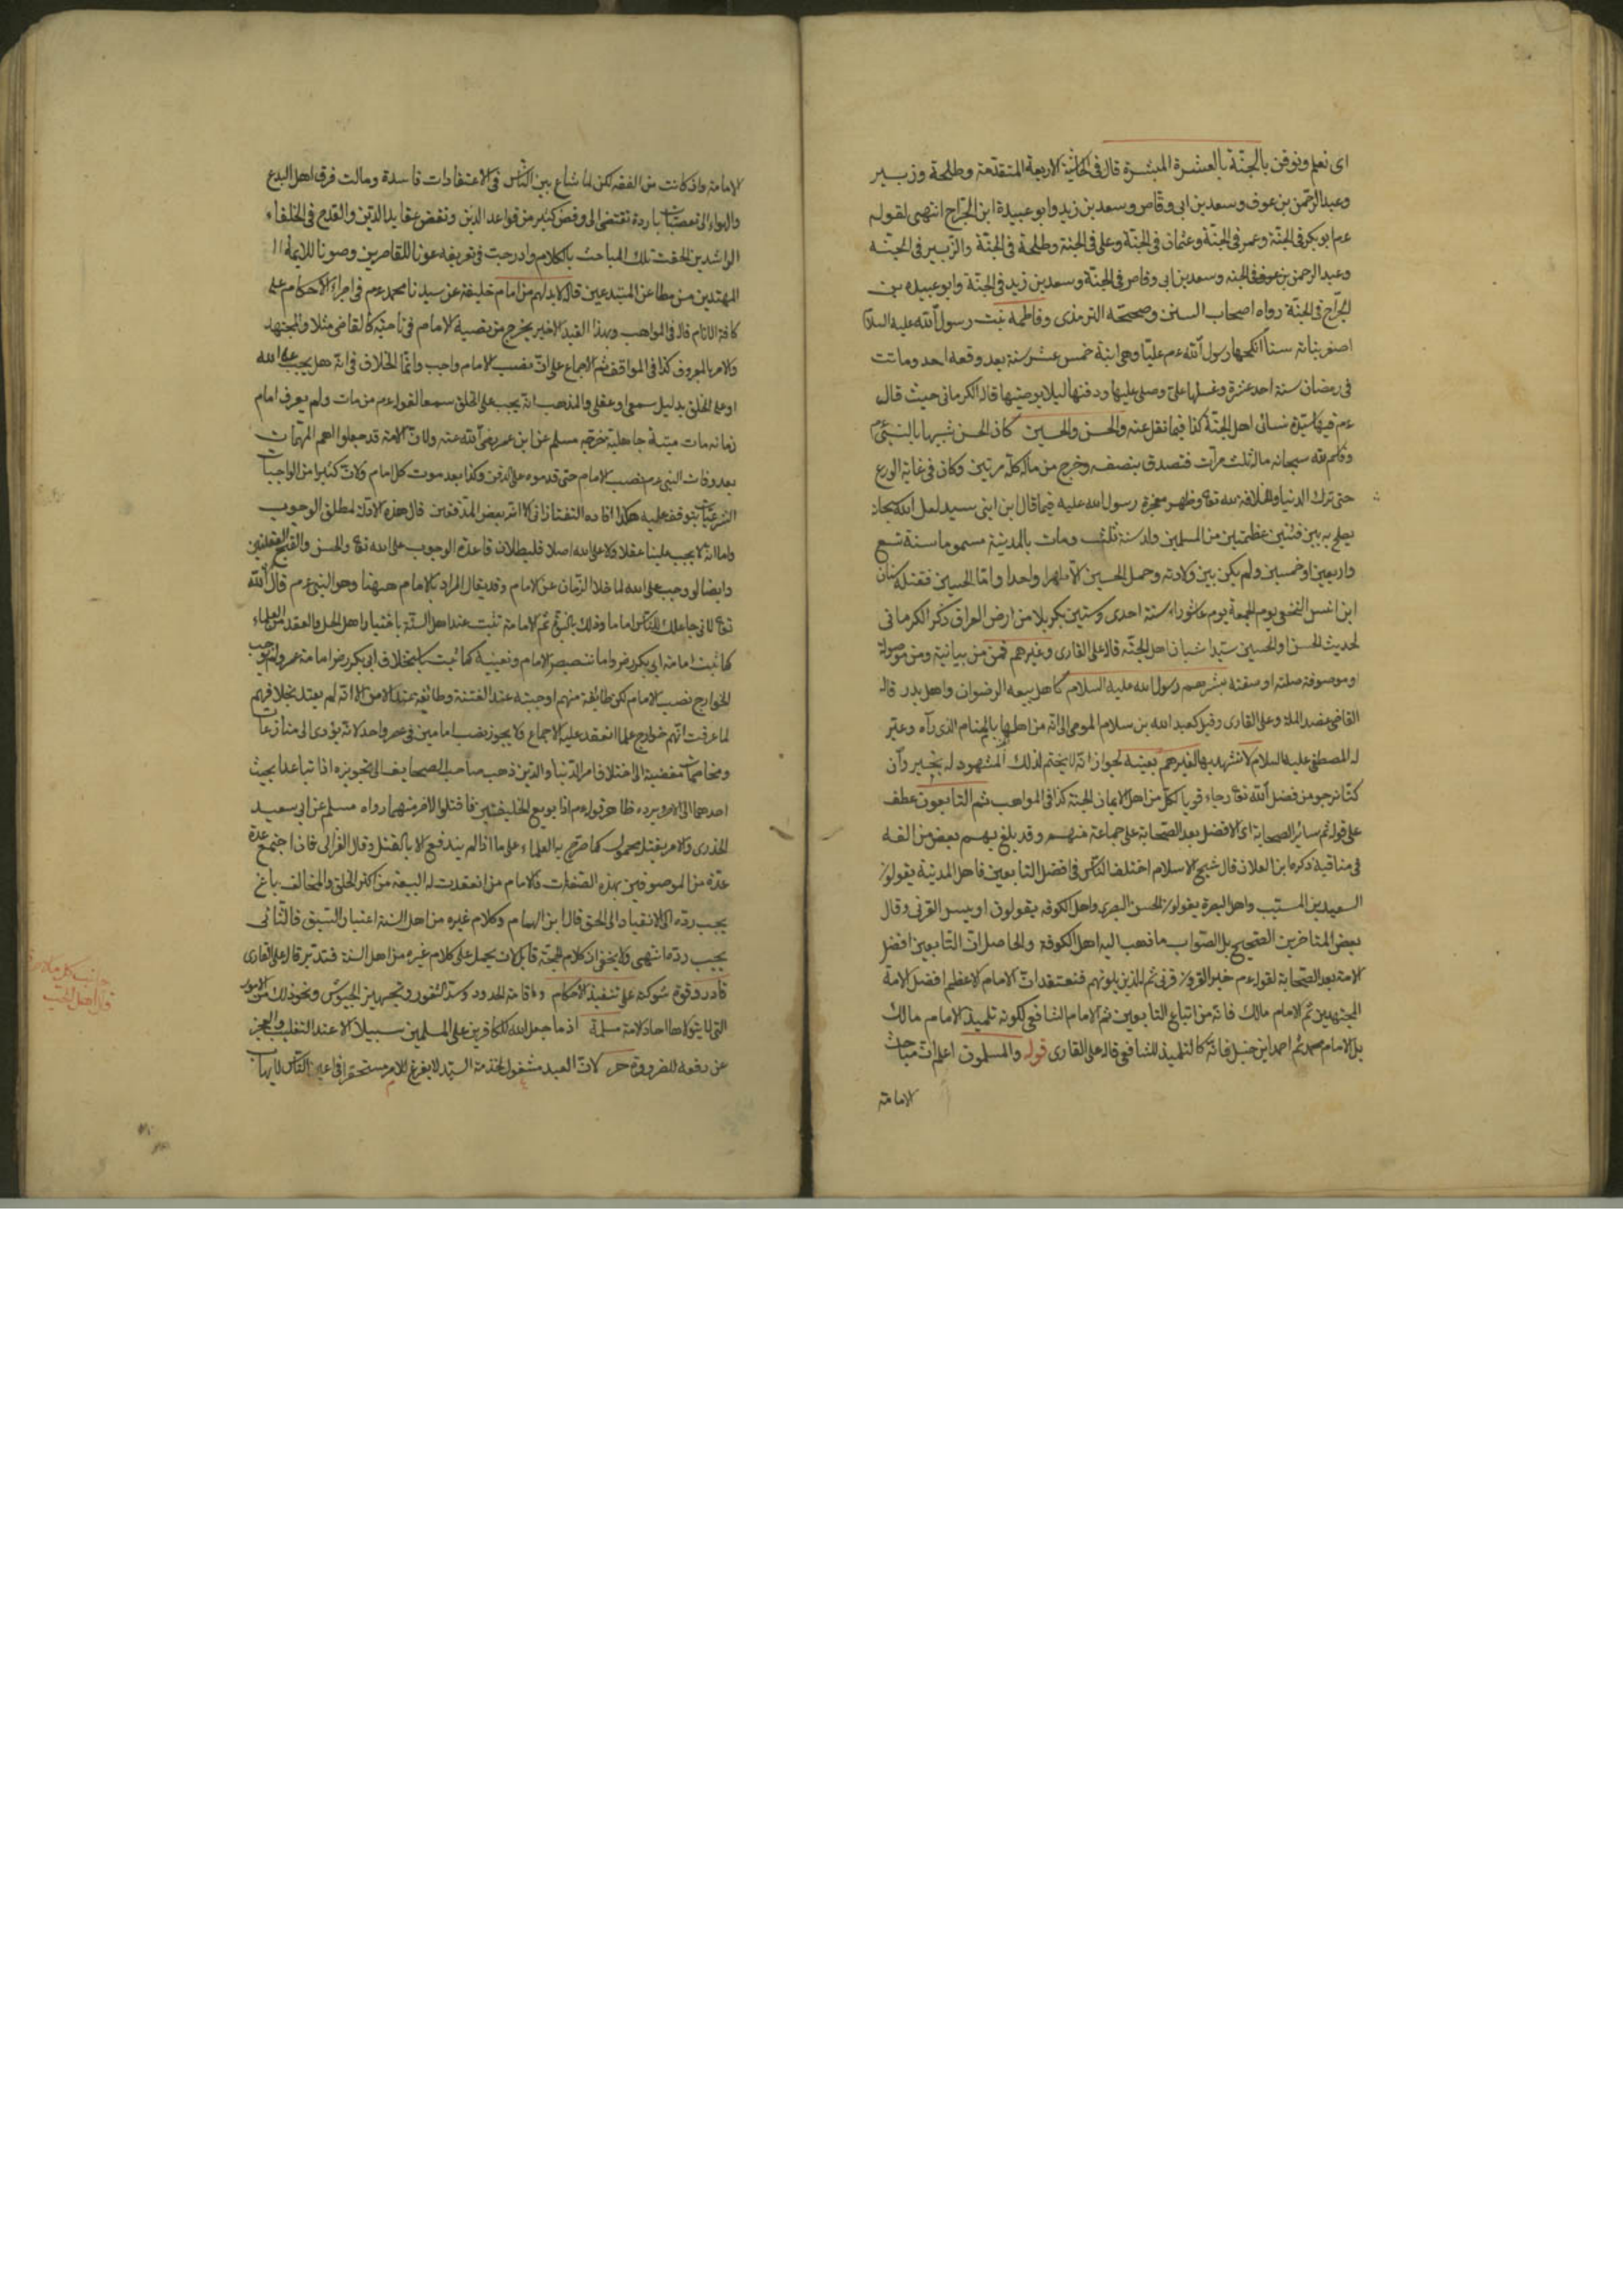 اى نعلم ونوقن بالجنّة بالعشرة المبشرة قال فى الحاشية الاربعة المتقدمة وطلحة وزبير
وعبد الرحمن بن عوف وسعد بن ابى وقاص وسعد بن زيد وابو عبيدة ابن الجرّاح انتهى لقوله
عم ابو بكر فى الجنة وعمر فى الجنّة وعثمان فى الجنّة وعلى فى الجنة وطلحة فى الجنّة والزّبير فى الجنّة
وعبد الرحمن بن عوف فى الجنه وسعد بن ابى وقاص فى الجنّة وسعد بن زيد فى الجنّة وابو عبيده بن
الجرّاح فى الجنّة رواه اصحاب السنن وصححه الترمذى وفاطمة بنت رسول الله عليه السلام
اصغر بناته سنا انكحها رسول الله عم عليّا وهى ابنة خمس عشر سنة بعد وقعة احد وماتت
فى رمضان سنة احد عشرة وغسلها علىّ وصلى عليها ودفنها ليلا بوصيّتها قاله الكرمانى حيث قال
عم فيها سيّدة نسائى اهل الجنّة كذا فيما نقل عنه والحسن والحسين كان الحسن شبيها بالنبىّ عم
وقاسم الله سبحانه ماله ثلث مرّات فتصدق بنصفه وخرج من ماله كلّه مرتين وكان فى غاية الورع
حتى ترك الدنيا والخلافة لله تعا وظهر معجزة رسول الله عليه فيما قال ابن ابنى سيد لعل الله سبحانه
يصلح به بين فئتين عظمتين من المسلمين ولد سنة ثلث ومات بالمدينة مسموما سنة تسع
واربعين او خمسين ولم يكن بين ولادته وحمل الحسين الّا طهرا واحدا وامّا الحسين فقتله سنان
ابن انس النخعى يوم الجمعة يوم عاشوراء سنة احدى وستين بكربلا من ارض العراق ذكر الكرمانى
لحديث الحسن والحسين سيّدا شبان اهل الجنّة قاله على القارى وغيرهم فمن من بيانية ومن موصولة
او موصوفة صلته او صفته بشرهم رسول الله عليه السلام كاهل بيعة الرضوان واهل بدر قاله
القاضى عضد الملة وعلى القارى وقيل كعبد الله بن سلام المومى الى انّه من اهلها بالمنام الذى رآه وعبّر
له المصطفى عليه السلام لا نشهد بها لغيرهم بعينه لجواز انّه لا يختم لذلك المشهود له بخير وان
كنّا نرجو من فضل الله تعا رجاء قويا لكل من اهل الايمان الجنة كذا فى المواهب ثم التابعون عطف
على قوله ثم سائر الصحابة اى الافضل بعد الصّحابة على جماعة منهم وقد بلغ بهم بعض من الّفه
فى مناقبه ذكره ابن العلان قال شيخ الاسلام اختلف النّاس فى افضل التابعين فاهل المدينة يقولون
السعيد بن المسيّب واهل البصرة يقولون للحسن البصرى واهل الكوفة يقولون اويس القرنى وقال
بعض المتاخرين الصّحيح بل الصّواب ما ذهب اليه اهل الكوفة والحاصل انّ التّابعين افضل
الامة بعد الصّحابة لقوله عم خير القرون قرنى ثم الذين يلونهم فنعتقد انّ الامام الاعظم افضل الامة
المجتهدين ثم الامام مالك فانّه من اتباع التابعين ثم الامام الشافعى لكونه تلميذ الامام مالك
بل الامام محمد ثم احمد ابن حنبل فانّه كالتلميذ للشافعى قاله على القارى قوله والمسلمون اعلم انّ مباحث
الامامة
الامامة وان كانت من الفقه لكن لما شاع بين النّاس فى الاعتقادات فاسدة ومالت فرق اهل البدع
والهواء الى تعصبات باردة تفتضى الى رفض كثير من قواعد الدّين ونقض عقايد الدّين والقدح فى الخلفاء
الراشدين الحقت تلك المباحث بالكلام وادرجت فى تعريفه عونا للقاصرين وصونا للايمّة
المهتدين من مطاعن المبتدعين قال لا بد لهم من امام خليفة عن سيدنا محمد عم فى اجراء الاحكام على
كافة الانام قال فى المواهب وبهذا القيد الاخير يخرج من نصبه الامام فى ناحيته كالقاضى مثلا والمجتهد
والامر بالمعروف كذا فى المواقف ثم الاجماع على انّ نصب الامام واجب وانّما الخلاف فى انّه هل يجب على الله
او على الخلق بدليل سمعى او عقلى والمذهب انّه يجب على الخلق سمعا لقوله عم من مات ولم يعرف امام
زمانه مات ميتة جاهلية خرّجه مسلم عن ابن عمر رضى الله عنه ولانّ الامّة قد جعلوا اهمّ المهمّات
بعد وفات النبى عم نصب الامام حتى قدموه على الدفن وكذا بعد موت كل امام ولانّ كثيرا من الواجبات
الشرعيّة يتوقف عليه هكذا افاده التفتازانى الا انّه بعض المدققين قال هذه الادلة لمطلق الوجوب
واما انّه لا يجب علينا عقلا ولا على الله اصلا فلبطلان قاعدة الوجوب على الله تعا والحسن والقبح العقليين
وايضا لو وجب على الله لما خلا الزّمان عن الامام وقد يقال المراد بالامام ههنا وهو النبى عم قال الله
تعا انى جاعلك للنّاس اماما وذلك بالنبوّة ثم الامامة تثبت عند اهل السّنّة باختيار اهل الحل والعقد من العلماء
كما ثبت امامة ابى بكر رض واما تنصيص الامام وتعيينه كما ثبت باستخلاف ابى بكر رض امامة عمر ولم يوجب
الخوارج نصب الامام لكن طائفة منهم اوجبته عند الفتنة وطائفة عند الامن الا انّه لم يعتد بخلافهم
لما عرفت انّهم خوارج على ما انعقد عليه الاجماع ولا يجوز نصب امامين فى عصر واحد لانّه يؤدى الى منازعات
ومخاصمات مفضية الى اختلاف امر الدّنيا والدّين ذهب صاحب الصحايف الى تجويزه اذا تباعدا بحيث
احدهما الى الآخر ويرده ظاهر قوله عم اذا بويع الخليفتين فاقتلوا الآخر منهما رواه مسلم عن ابى سعيد
الخدرى والامر بقتله محمول كما صرّح به العلماء على ما اذا لم يندفع الا بالقتل وقال الغزالى فان اجتمع عدّة
عدّة من الموصوفين بهذه الصّفات فالامام من انعقدت له البيعة من اكثر الخلق والمخالف باغ
يجب ردّه الى الانقياد الى الحق قال ابن الهمام وكلام غيره من اهل السنة اعتبار السّبق فالثّانى
يجب ردّه انتهى ولا يخفى ان كلام الحجّة قابل لان يحمل على كلام غيره من اهل السنة فتدبر قال على القارى
قادر وقوة شوكة على تنفيذ الاحكام واقامة الحدود وسدّ الثغور وتجهيز الجيوش ونحو ذلك من الامور
التى لا يتولاها احاد الامة مسلمة اذ ما جعل الله للكافرين على المسلمين سبيلا الا عند التغلب والعجز
عن دفعه للضرورة حر لانّ العبد مشغول لخدمة السيّد لا يفرغ للامر مستحقرا فى اعين النّاس لا يهاب